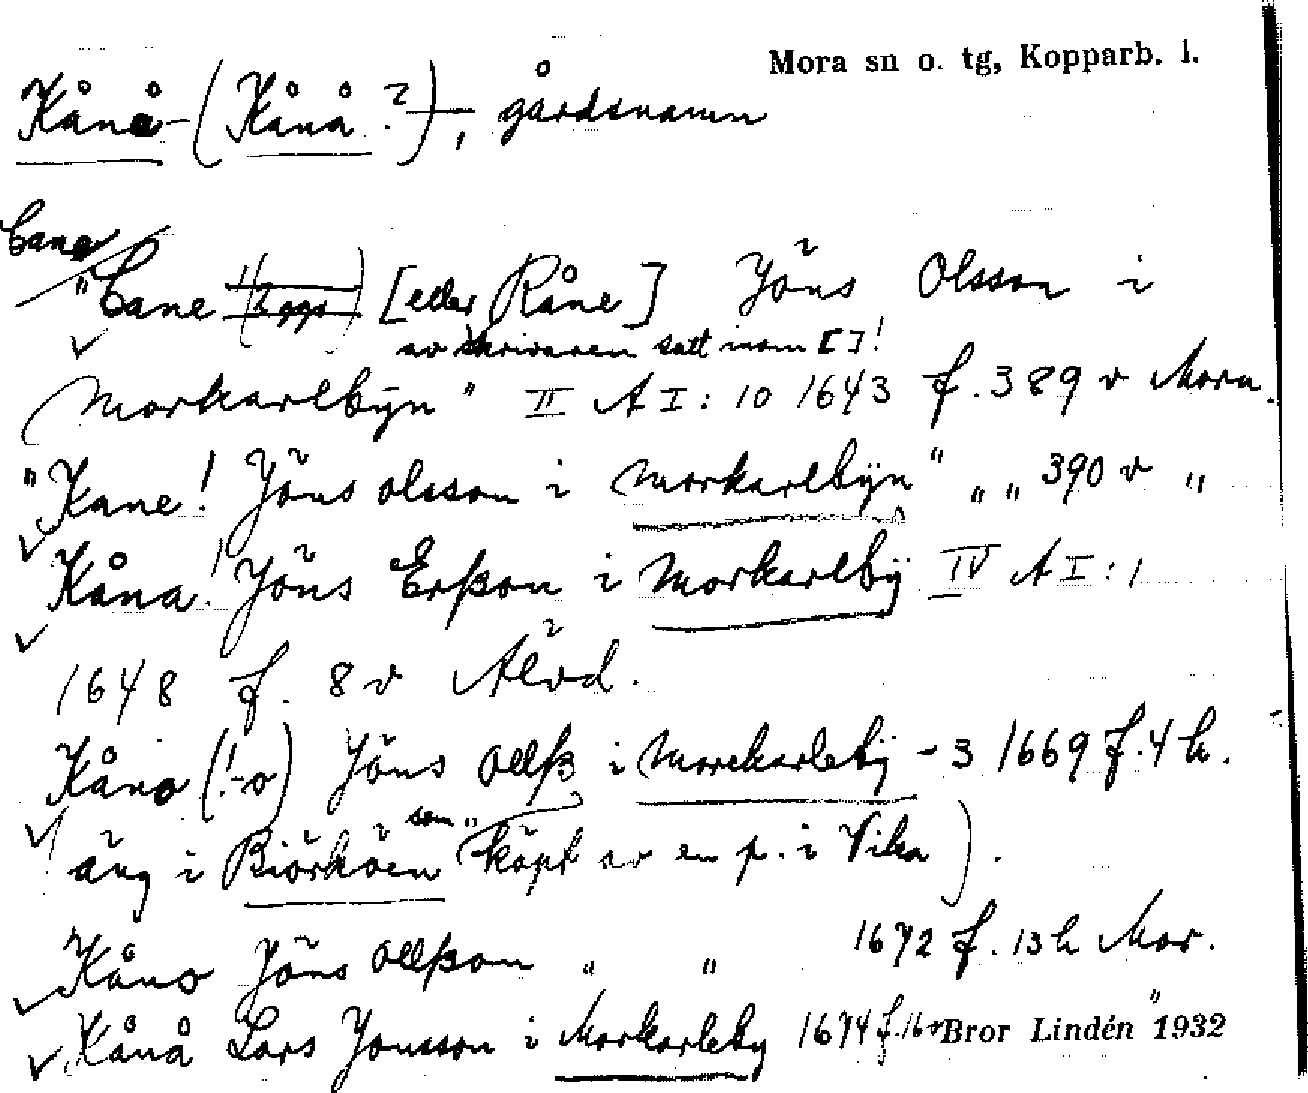 Mora sn o. tg, Kopparb. l.
Kånå- (Kånå ?), gårdsnamn
Cane
"Cane [eller Råne] Jöns Olsson i
av skrivaren satt inom [ ]!
Morkarlbyn" II A I: 10 1643 f. 389 v Mora.
"Kane! Jöns olsson i Morkarlbyn" " " 390 v "
Kåna! Jöns Erßon i Morkarlby IV A I: 1
1648 f. 8 v Älvd.
Kåno (!-o) Jöns Ollß i Morekarleby - 3 1669 f. 4 h.
(äng i Biörköen som "köpt av en p. i Vika).
Kåno Jöns Ollßon " " 1672 f. 13 h Mor.
Kånå Lars Jonsson i Morkarleby 1674 f. 16 v "
Bror Lindén 1932